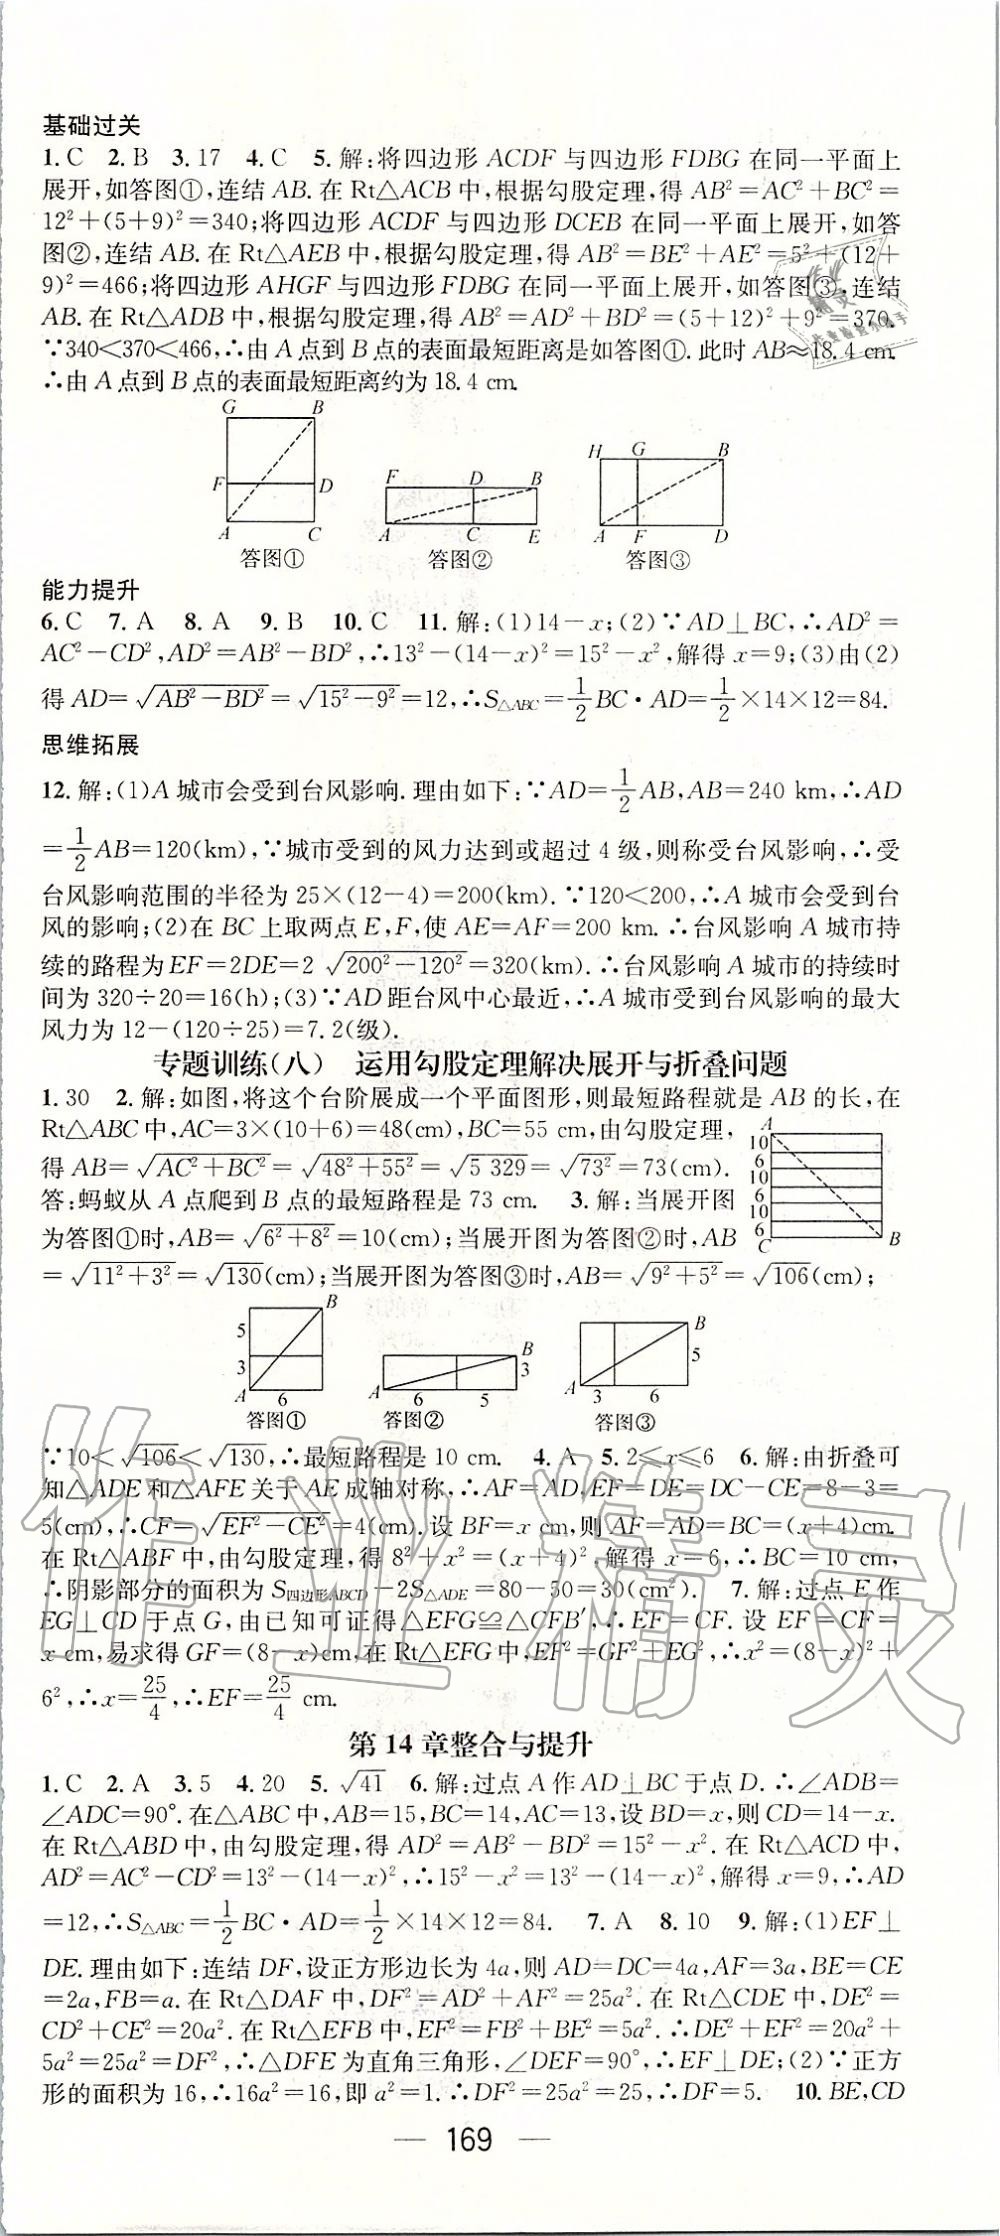 基础过关
1. C 2. B 3. 17 4. C 5. 解:将四边形 ACDF 与四边形 FDBG 在同一平面上
展开,如答图①,连结 AB. 在 Rt△ACB 中,根据勾股定理,得 AB²=AC²+BC²=
12²+(5+9)²=340;将四边形 ACDF 与四边形 DCEB 在同一平面上展开,如答
图②,连结 AB. 在 Rt△AEB 中,根据勾股定理,得 AB²=BE²+AE²=5²+(12+
9)²=466;将四边形 AHGF 与四边形 FDBG 在同一平面上展开,如答图③,连结
AB. 在 Rt△ADB 中,根据勾股定理,得 AB²=AD²+BD²=(5+12)²+9²=370.
∵340<370<466,∴由 A 点到 B 点的表面最短距离是如答图①. 此时 AB≈18.4 cm.
∴由 A 点到 B 点的表面最短距离约为 18.4 cm.
G B
F D
A C
答图①
F D B
A C E
答图②
H G B
A F D
答图③
能力提升
6. C 7. A 8. A 9. B 10. C 11. 解:(1)14-x;(2)∵AD⊥BC,∴AD²=
AC²-CD²,AD²=AB²-BD²,∴13²-(14-x)²=15²-x²,解得 x=9;(3)由(2)
得 AD=√(AB²-BD²)=√(15²-9²)=12,∴S△ABC=1/2 BC·AD=1/2×14×12=84.
思维拓展
12. 解:(1)A 城市会受到台风影响. 理由如下:∵AD=1/2 AB,AB=240 km,∴AD
=1/2 AB=120(km),∵城市受到的风力达到或超过 4 级,则称受台风影响,∴受
台风影响范围的半径为 25×(12-4)=200(km). ∵120<200,∴A 城市会受到台
风的影响;(2)在 BC 上取两点 E,F,使 AE=AF=200 km. ∴台风影响 A 城市持
续的路程为 EF=2DE=2 √(200²-120²)=320(km). ∴台风影响 A 城市的持续时
间为 320÷20=16(h);(3)∵AD 距台风中心最近,∴A 城市受到台风影响的最大
风力为 12-(120÷25)=7.2(级).
专题训练(八) 运用勾股定理解决展开与折叠问题
1. 30 2. 解:如图,将这个台阶展成一个平面图形,则最短路程就是 AB 的长,在
Rt△ABC 中,AC=3×(10+6)=48(cm),BC=55 cm,由勾股定理,
得 AB=√(AC²+BC²)=√(48²+55²)=√(5 329)=√(73²)=73(cm).
答:蚂蚁从 A 点爬到 B 点的最短路程是 73 cm. 3. 解:当展开图
为答图①时,AB=√(6²+8²)=10(cm);当展开图为答图②时,AB
=√(11²+3²)=√130(cm);当展开图为答图③时,AB=√(9²+5²)=√106(cm);
A
10
6
10
6
10
6
C B
B
5
3
A 6
答图①
B
3
A 6 5
答图②
B
5
A 3 6
答图③
∵10<√106<√130,∴最短路程是 10 cm. 4. A 5. 2≤x≤6 6. 解:由折叠可
知△ADE 和△AFE 关于 AE 成轴对称,∴AF=AD,EF=DE=DC-CE=8-3=
5(cm),∴CF=√(EF²-CE²)=4(cm). 设 BF=x cm,则 AF=AD=BC=(x+4)cm.
在 Rt△ABF 中,由勾股定理,得 8²+x²=(x+4)²,解得 x=6,∴BC=10 cm,
∴阴影部分的面积为 S四边形ABCD-2S△ADE=80-50=30(cm²). 7. 解:过点 E 作
EG⊥CD 于点 G,由已知可证得△EFG≌△CFB′,∴EF=CF. 设 EF=CF=
x cm,易求得 GF=(8-x)cm,在 Rt△EFG 中,EF²=GF²+EG²,∴x²=(8-x)²+
6²,∴x=25/4,∴EF=25/4 cm.
第 14 章整合与提升
1. C 2. A 3. 5 4. 20 5. √41 6. 解:过点 A 作 AD⊥BC 于点 D. ∴∠ADB=
∠ADC=90°. 在△ABC 中,AB=15,BC=14,AC=13,设 BD=x,则 CD=14-x.
在 Rt△ABD 中,由勾股定理,得 AD²=AB²-BD²=15²-x². 在 Rt△ACD 中,
AD²=AC²-CD²=13²-(14-x)²,∴15²-x²=13²-(14-x)²,解得 x=9,∴AD
=12,∴S△ABC=1/2 BC·AD=1/2×14×12=84. 7. A 8. 10 9. 解:(1)EF⊥
DE. 理由如下:连结 DF,设正方形边长为 4a,则 AD=DC=4a,AF=3a,BE=CE
=2a,FB=a. 在 Rt△DAF 中,DF²=AD²+AF²=25a². 在 Rt△CDE 中,DE²=
CD²+CE²=20a². 在 Rt△EFB 中,EF²=FB²+BE²=5a². ∴DE²+EF²=20a²+
5a²=25a²=DF²,∴△DFE 为直角三角形,∠DEF=90°,∴EF⊥DE;(2)∵正方
形的面积为 16,∴16a²=16,即 a²=1. ∴DF²=25a²=25,∴DF=5. 10. BE,CD
— 169 —
作业精灵